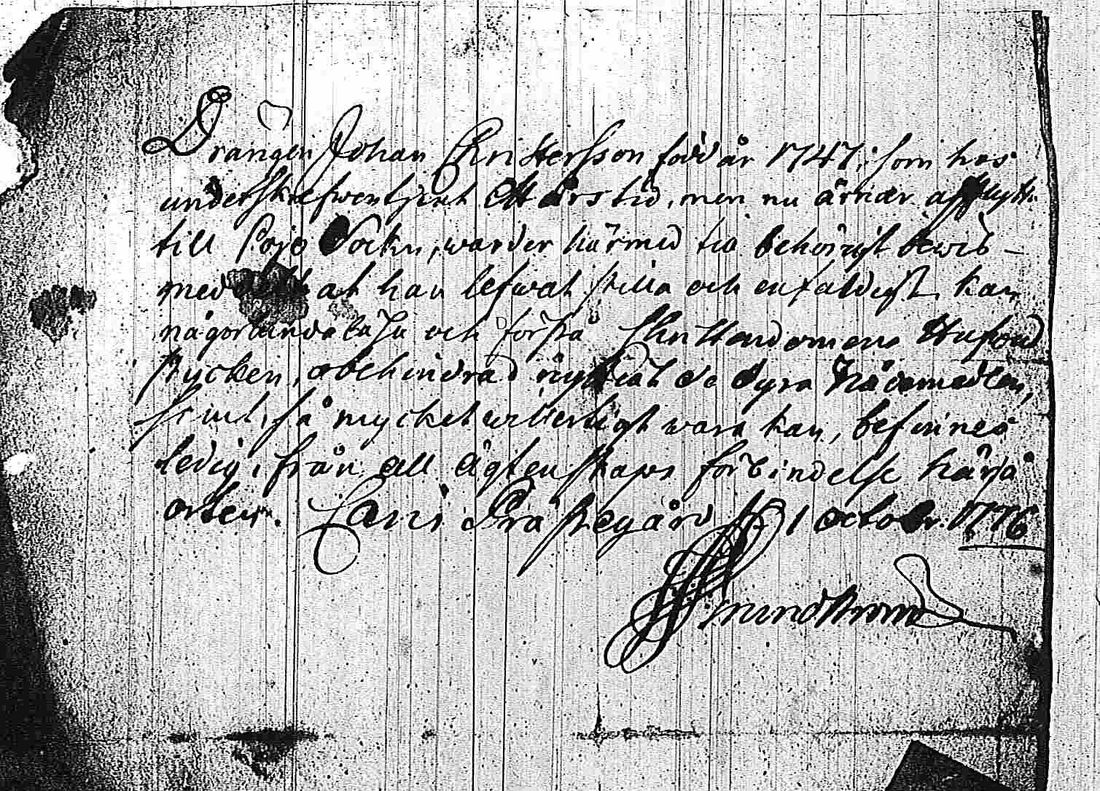 Drängen Johan Christersson född år 1747, som hos
underskrefwen tient ett års tid, men nu ärnar afflytta
till Pojo Sockn, warder härmed til behörigt bewis
med at han lefwat stilla och enfaldigt, kan
någorlunda läsa och förstå Christendomens Hufwud
stycken, obehindrad nyttiat de dyra Nådemedlen,
samt, så mycket witterligt wara kan, befinnes
ledig, från all ägtenskaps förbindelse här på
orten. Caris Prästegård d. 1 octobr. 1776